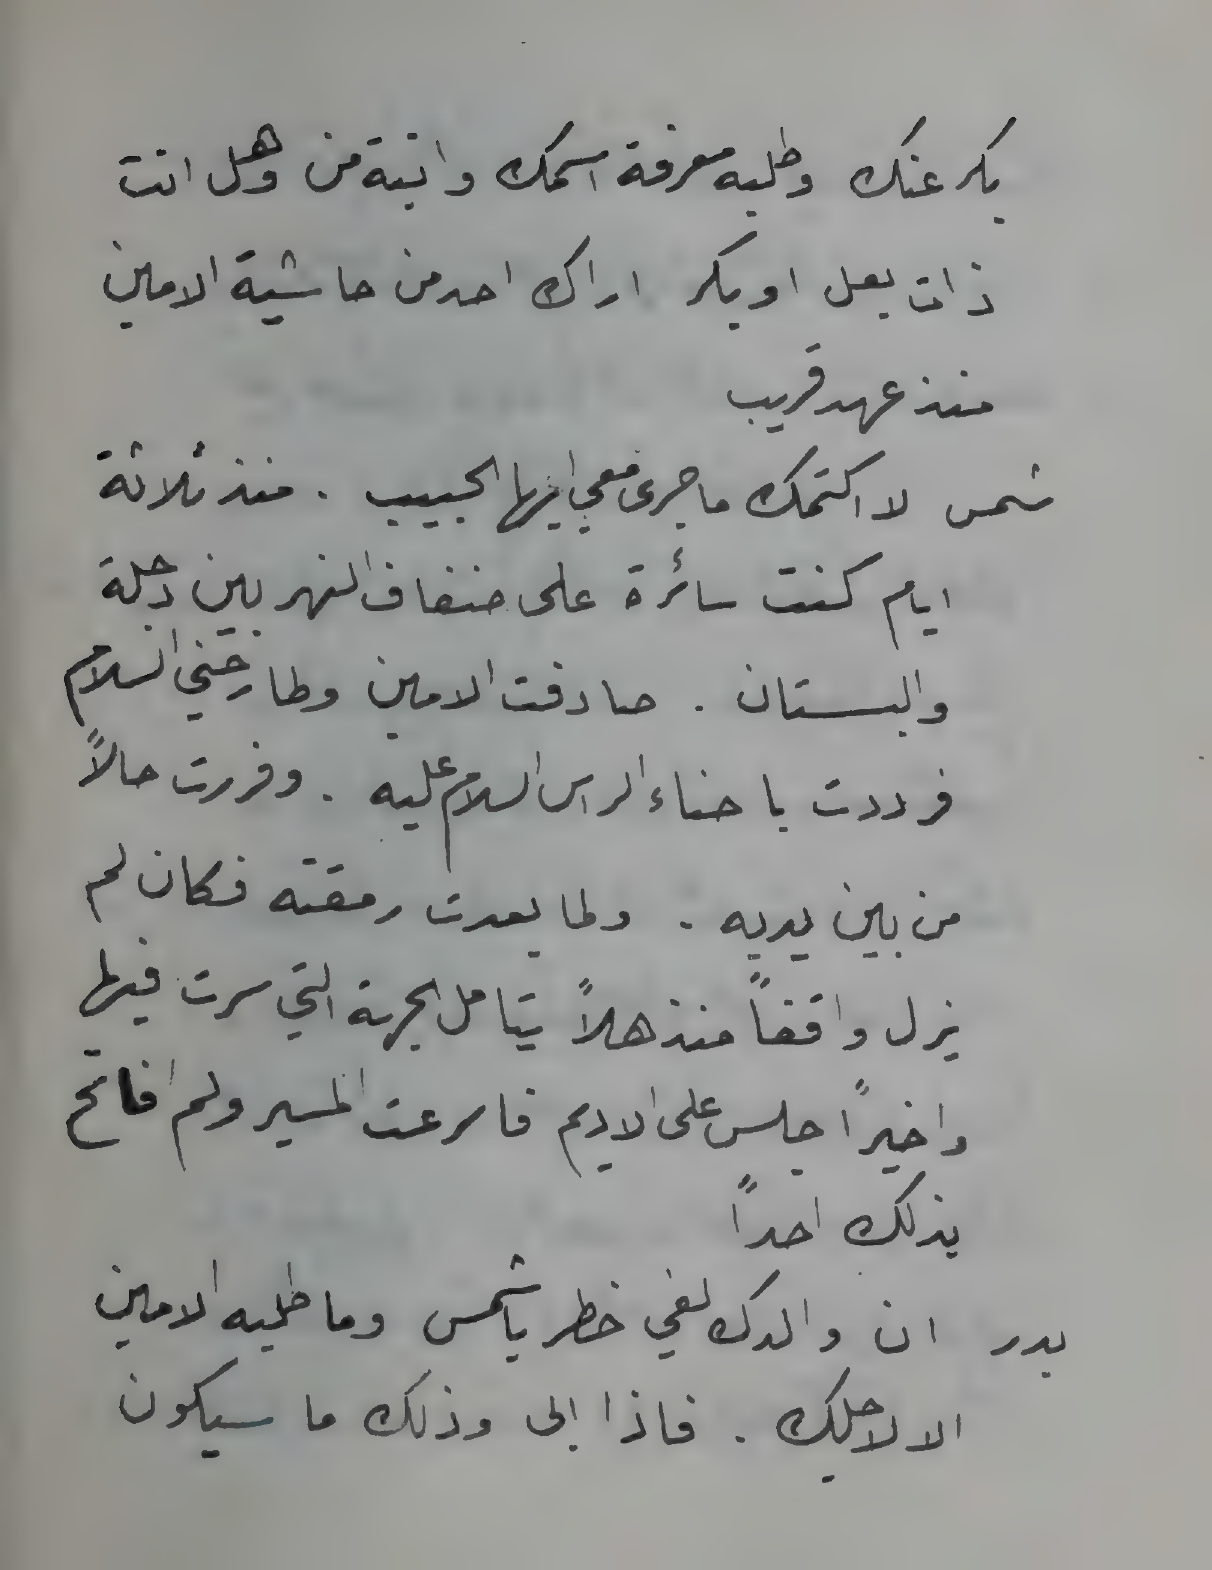 بكر عنك وطلبه معرفة اسمك وابنة من وهل انت
ذات بعل او بكر . اراك احد من حاشية الامين
منذ عهد قريب
شمس لا اكتمك ما جرى معي ايها الحبيب . منذ ثلاثة
ايام كنت سائرة على ضفاف النهر بين دجلة
والبستان . صادفت الامين وطارحني السلام
فرددت باحناء الراس السلام عليه . وفررت حالاً
من بين يديه . ولما بعدت رمقته فكان لم
يزل واقفاً منذهلاً يتامل الجهة التي سرت فيها
واخيراً جلس على الاديم فاسرعت المسير ولم افاتح
بذلك احداً
بدر ان والدك لفي خطر يا شمس وما طلبه الامين
الا لاجلك . فاذا ابى وذلك ما سيكون